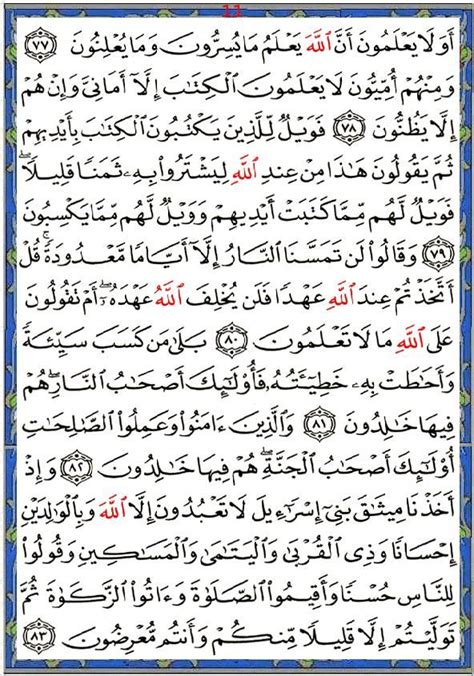 11
أَوَلَا يَعْلَمُونَ أَنَّ ٱللَّهَ يَعْلَمُ مَا يُسِرُّونَ وَمَا يُعْلِنُونَ ٧٧
وَمِنْهُمْ أُمِّيُّونَ لَا يَعْلَمُونَ ٱلْكِتَٰبَ إِلَّآ أَمَانِىَّ وَإِنْ هُمْ
إِلَّا يَظُنُّونَ ٧٨ فَوَيْلٌ لِّلَّذِينَ يَكْتُبُونَ ٱلْكِتَٰبَ بِأَيْدِيهِمْ
ثُمَّ يَقُولُونَ هَٰذَا مِنْ عِندِ ٱللَّهِ لِيَشْتَرُوا۟ بِهِۦ ثَمَنًا قَلِيلًا ۖ
فَوَيْلٌ لَّهُم مِّمَّا كَتَبَتْ أَيْدِيهِمْ وَوَيْلٌ لَّهُم مِّمَّا يَكْسِبُونَ
٧٩ وَقَالُوا۟ لَن تَمَسَّنَا ٱلنَّارُ إِلَّآ أَيَّامًا مَّعْدُودَةً ۚ قُلْ
أَتَّخَذْتُمْ عِندَ ٱللَّهِ عَهْدًا فَلَن يُخْلِفَ ٱللَّهُ عَهْدَهُۥٓ ۖ أَمْ تَقُولُونَ
عَلَى ٱللَّهِ مَا لَا تَعْلَمُونَ ٨٠ بَلَىٰ مَن كَسَبَ سَيِّئَةً
وَأَحَٰطَتْ بِهِۦ خَطِيٓـَٔتُهُۥ فَأُو۟لَٰٓئِكَ أَصْحَٰبُ ٱلنَّارِ ۖ هُمْ
فِيهَا خَٰلِدُونَ ٨١ وَٱلَّذِينَ ءَامَنُوا۟ وَعَمِلُوا۟ ٱلصَّٰلِحَٰتِ
أُو۟لَٰٓئِكَ أَصْحَٰبُ ٱلْجَنَّةِ ۖ هُمْ فِيهَا خَٰلِدُونَ ٨٢ وَإِذْ
أَخَذْنَا مِيثَٰقَ بَنِىٓ إِسْرَٰٓءِيلَ لَا تَعْبُدُونَ إِلَّا ٱللَّهَ وَبِٱلْوَٰلِدَيْنِ
إِحْسَانًا وَذِى ٱلْقُرْبَىٰ وَٱلْيَتَٰمَىٰ وَٱلْمَسَٰكِينِ وَقُولُوا۟
لِلنَّاسِ حُسْنًا وَأَقِيمُوا۟ ٱلصَّلَوٰةَ وَءَاتُوا۟ ٱلزَّكَوٰةَ ثُمَّ
تَوَلَّيْتُمْ إِلَّا قَلِيلًا مِّنكُمْ وَأَنتُم مُّعْرِضُونَ ٨٣